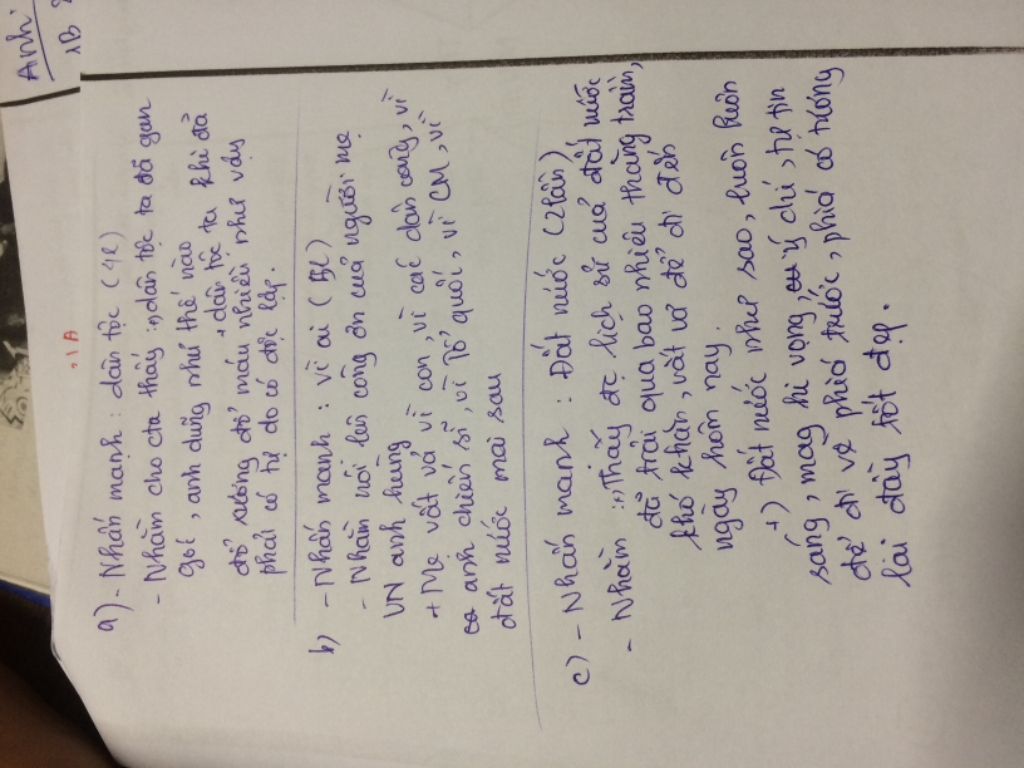 Anh.
1B
, 1A
a) - Nhấn mạnh : dân tộc (4L)
- Nhằm cho cta thấy : dân tộc ta đã gan
góc, anh dũng như thế nào
+ dân tộc ta khi đã
đổ xuống đổ máu nhiều như vậy
phải có tự do có độc lập.
b) - Nhấn mạnh : vì ai (5L)
- Nhằm nói lên công ơn của người mẹ
VN anh hùng
+ Mẹ vất vả vì con, vì các dân công, vì
anh chiến sĩ, vì Tổ quốc, vì CM, vì
đất nước mai sau
c) - Nhấn mạnh : Đất nước (2 lần)
- Nhằm : Thấy đc lịch sử của đất nước
đã trải qua bao nhiêu thăng trầm,
khó khăn, vất vả để đi đến
ngày hôm nay.
+) Đất nước như sao, luôn luôn
sáng, mag hi vọng, ý chí, tự tin
để đi về phía trước, phía có tương
lai đầy tốt đẹp.